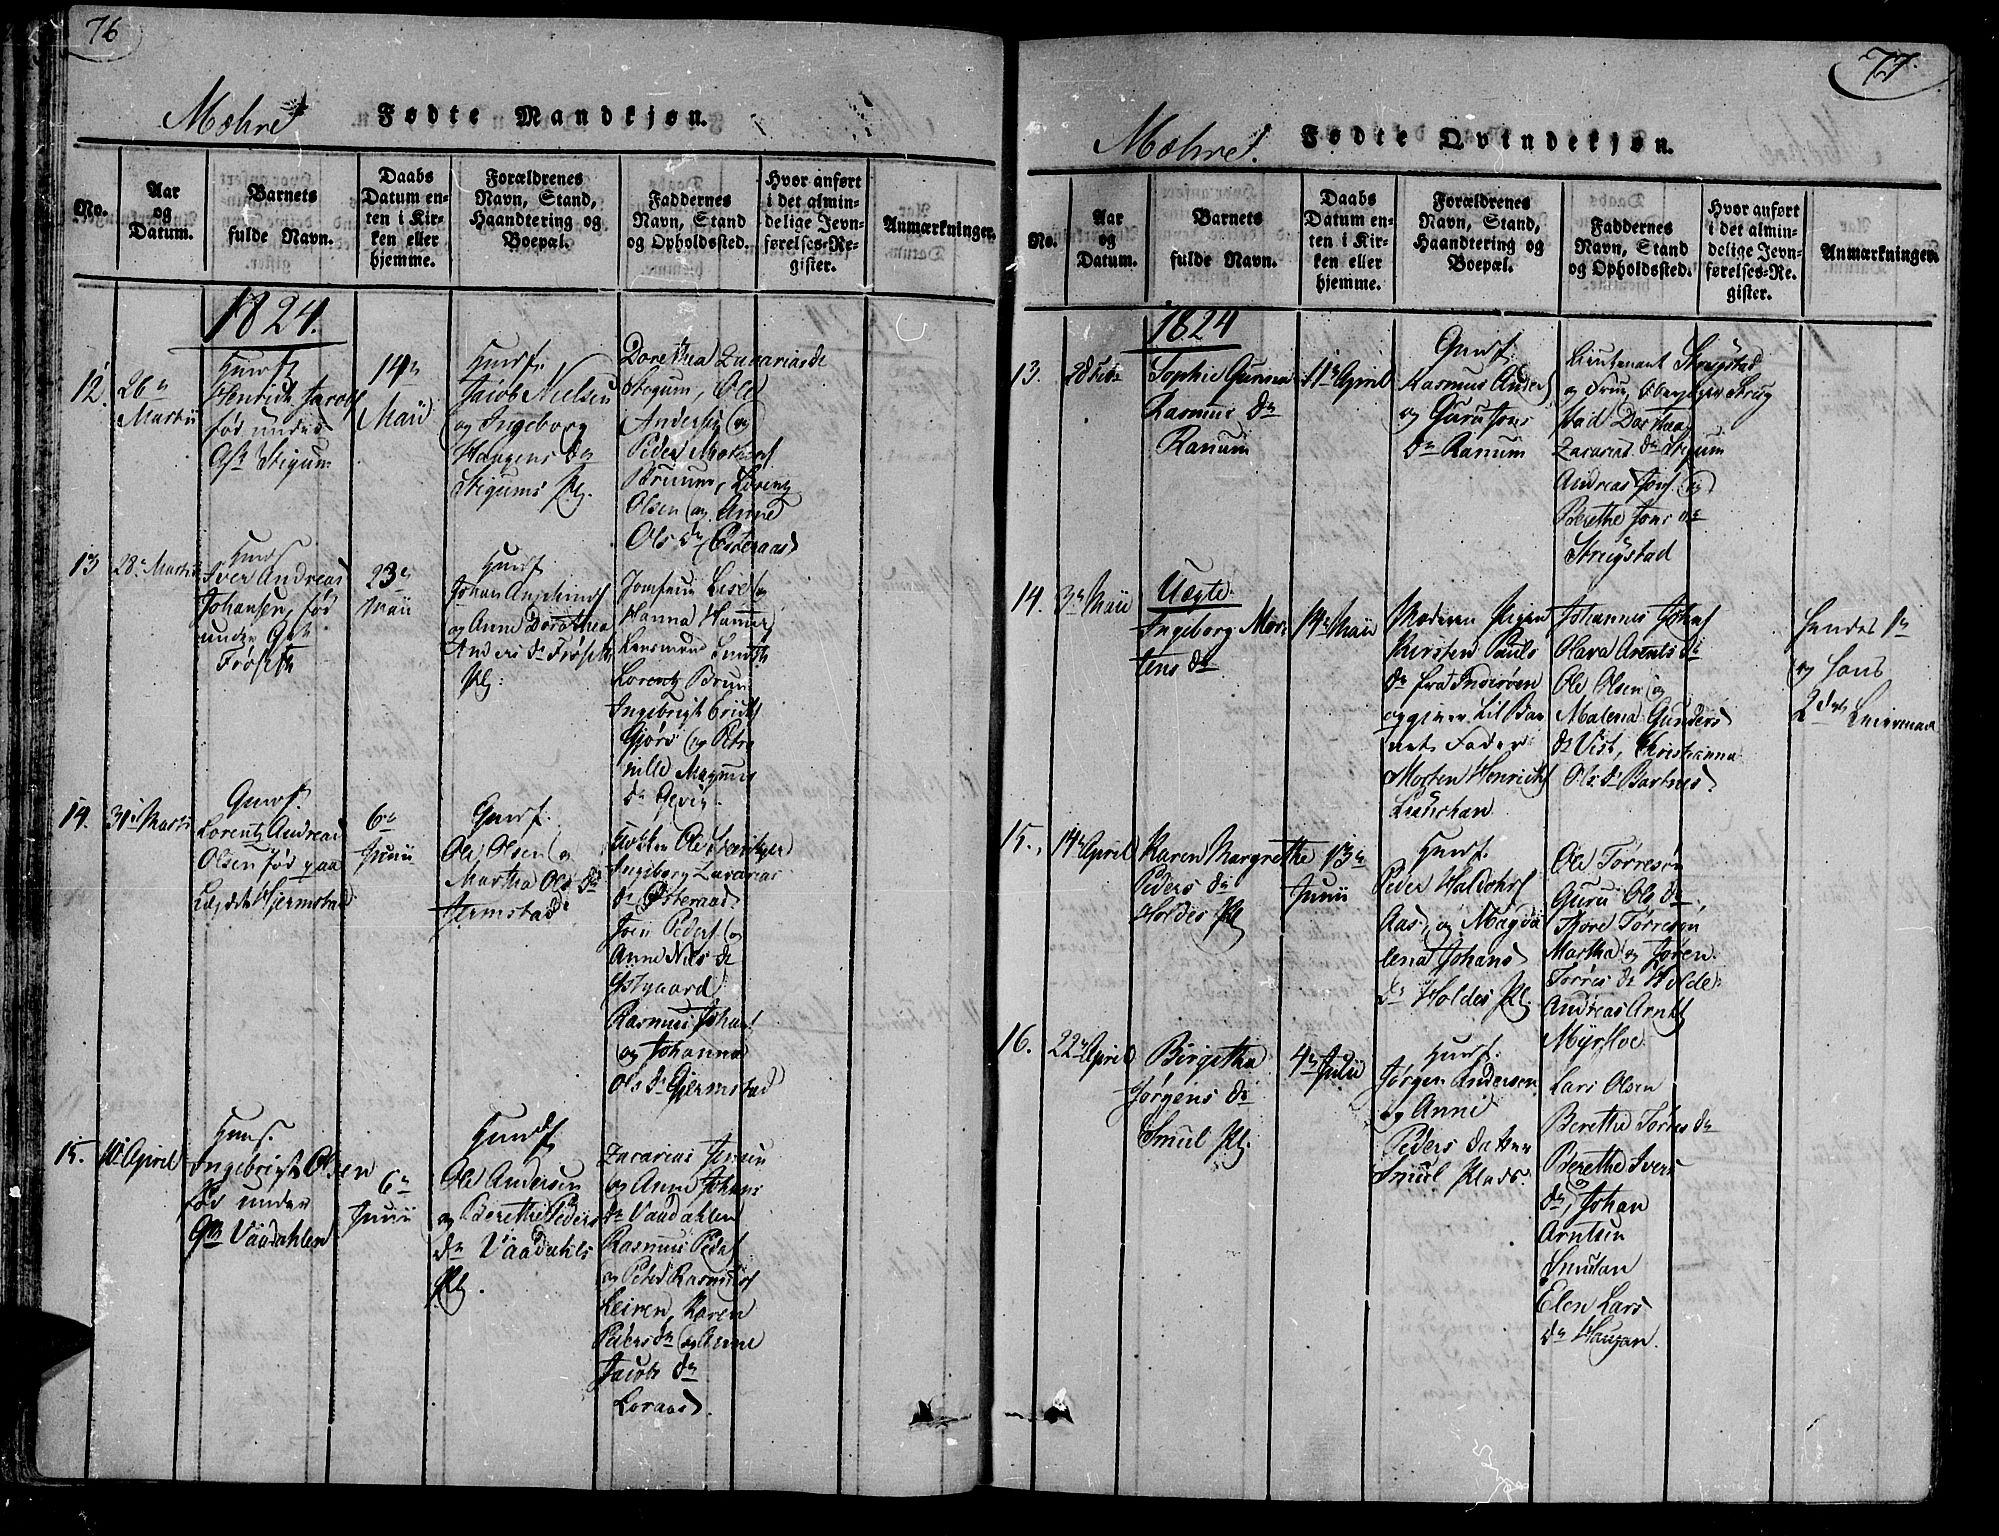 76
Mæhre
Fødte Mandkjøn.
No.
Aar
og
Datum.
Barnets
fulde Navn.
Daabs
Datum en-
ten i Kir-
ken eller
hjemme.
Forældrenes
Navn, Stand,
Haandtering og
Boepæl.
Faddernes
Navn, Stand
og Opholdssted.
Hvor anført
i det almin-
delige Jevn-
førelses-Re-
gister.
Anmærkninger.
1824.
12.
26de
Martii
Henrich Jacobs
fød under
Stigum
14de
Maii
Jacob Nielsen
og Ingeborg
Haagens dr
Stigums Pl.
Dorethea Zacariasdr
Stigum, Ole
Andersen og
Peder
Bruum, Lorentz
Olsen og Anne
Ols dr Østeraas
13
28de Martii
Iver Andreas
Johansen, fød
under
Frøseth
23de
Maii
Johan
og Anne Dorothea
Anders dr Frøseth
Pl:
Jomfrue Lise og
Hanna Hamer
Lensmand
Lorentz Brun
Ingebrigt Erichs
Gjørv og Petro
nille Magnus
dr
14.
31de Martii
Lorentz Andreas
Olsen fød paa
Hjermstad
6de
Junii
Ole Olsen og
Martha Ols dr
Hjermstad
Ole
Ingeborg Zacarias
dr Østeraas
Joen Peders og
Anne Niels dr
Østgaard
Rasmus Johans
og Johanna
Ols dr Hjermstad
15.
10de April
Ingebrigt Olsen
fød under
Vaadahlen
6de
Junii
Ole Andersen
og Berethe Peders
dr Vaadahls
Pl.
Zacarias Jensen
og Anne Johans
dr Vaadahlen
Rasmus Peders
og Peder Rasmus
Leiren, Karen
Peders dr og Anne
Jacobs dr
Loraas.
77.
Mæhre.
Fødte Qvindekjøn.
No.
Aar
og
Datum.
Barnets
fulde Navn.
Daabs
Datum en-
ten i Kir-
ken eller
hjemme.
Forældrenes
Navn, Stand,
Haandtering og
Boepæl.
Faddernes
Navn, Stand
og Opholdssted.
Hvor anført
i det almin-
delige Jevn-
førelses-Re-
gister.
Anmærkninger.
1824
13.
28 Feb
Sophie Gurina
Rasmus dr
Ranum
11te April
Rasmus Anders
og Guru Jons
dr Ranum
Lieutenant Strugstad
og Frue,
stad Dorthea
Zacarias dr Stigum
Andreas Jons og
Berethe Jons dr
Strugstad
14.
3de Maii
Uægte
Ingeborg Mor
tens dr
14de Maii
Moderen Pigen
Kirsten Pauls
dr fra Inderøen
opgiver til Bar
nets Fader
Morten Henrichs
Johannes Johans
Olava Arents dr
Ole Olsen og
Malena Gunders
dr Vist, Christianna
Ols dr Bartnes
Hendes 1te
og hans
2det Leiermaal
15.
14de April
Karen Margrethe
Peders dr
Holdes Pl
13de
Junii
Peder
Aas, og Magda
lena Johans
dr Holdes Pl
Ole Torresen
Guru Ols dr,
Thore Torresen
Martha og Jøren
Torres dr Holde
Andreas Arnts
Myrfloe
16.
22de April
Birgitha
Jørgens dr
Smul Pl.
4de Julii
Jørgen Andersen
og Anne
Peders dr
Smul Plads.
Lars Olsen
Berethe Torres dr
Berethe Ivers
dr, Johan
Arntsen
Smulan
Elen Lars
dr Haugan.